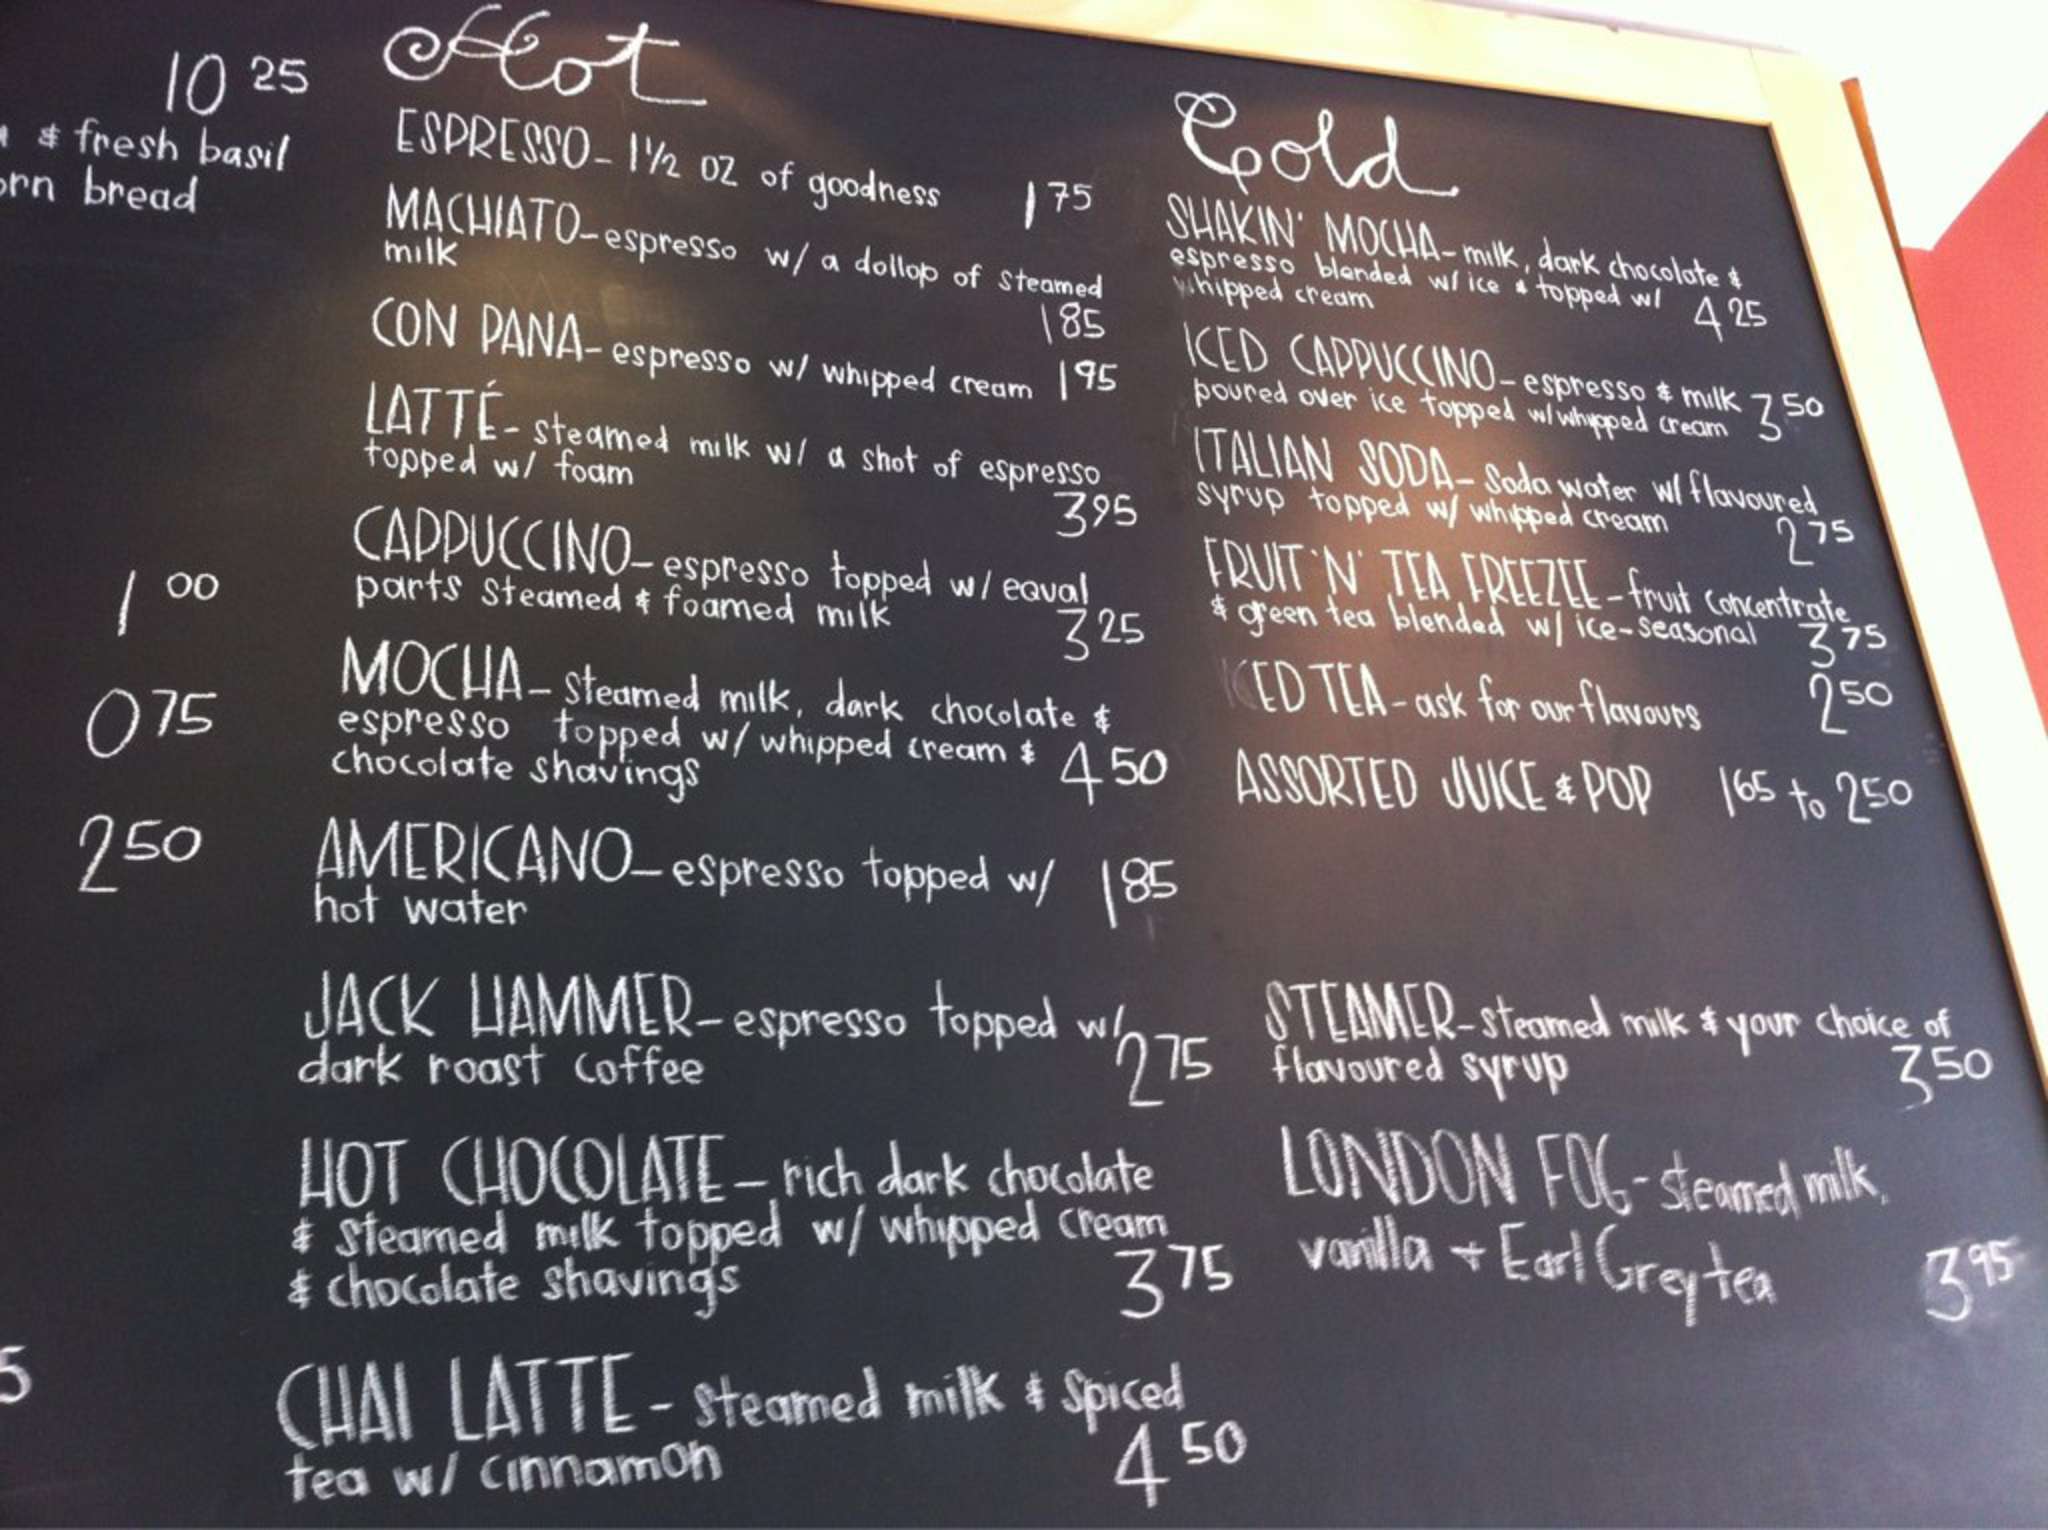 10 25
& fresh basil
bread
1 00
0 75
2 50
5
Hot
ESPRESSO - 1 1/2 OZ of goodness 1 75
MACHIATO - espresso w/ a dollop of steamed
milk 1 85
CON PANA - espresso w/ whipped cream 1 95
LATTÉ - steamed milk w/ a shot of espresso
topped w/ foam 3 95
CAPPUCCINO - espresso topped w/ equal
parts steamed & foamed milk 3 25
MOCHA - steamed milk, dark chocolate &
espresso topped w/ whipped cream &
chocolate shavings 4 50
AMERICANO - espresso topped w/ 1 85
hot water
JACK HAMMER - espresso topped w/
dark roast coffee 2 75
HOT CHOCOLATE - rich dark chocolate
& steamed milk topped w/ whipped cream
& chocolate shavings 3 75
CHAI LATTE - steamed milk & spiced
tea w/ cinnamon 4 50
Cold
SHAKIN' MOCHA - milk, dark chocolate &
espresso blended w/ ice & topped w/
whipped cream 4 25
ICED CAPPUCCINO - espresso & milk
poured over ice topped w/ whipped cream 3 50
ITALIAN SODA - soda water w/ flavoured
syrup topped w/ whipped cream 2 75
FRUIT 'N' TEA FREEZEE - fruit concentrate
& green tea blended w/ ice - seasonal 3 75
ICED TEA - ask for our flavours 2 50
ASSORTED JUICE & POP 1 65 to 2 50
STEAMER - steamed milk & your choice of
flavoured syrup 3 50
LONDON FOG - steamed milk,
vanilla + Earl Grey tea 3 95